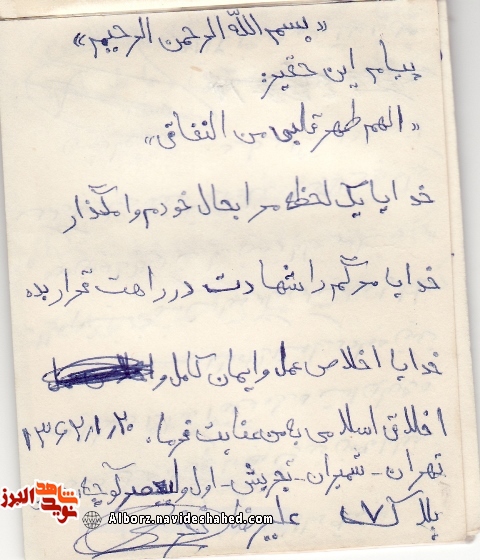 «بسم الله الرحمن الرحیم»
پیام این حقیر:
«الهم طهر قلبی من النفاق»
خدایا یک لحظه مرا بحال خودم وامگذار
خدایا مرگم را شهادت در راهت قرار بده
خدایا اخلاص عمل و ایمان کامل و
اخلاق اسلامی به من عنایت فرما. ۱۳۶۲/۱/۲۰
تهران - شمیران - تجریش - اول کوچه
پلاک ۷ علیرضا
شاهد نوید البرز
Alborz.navideshahed.com